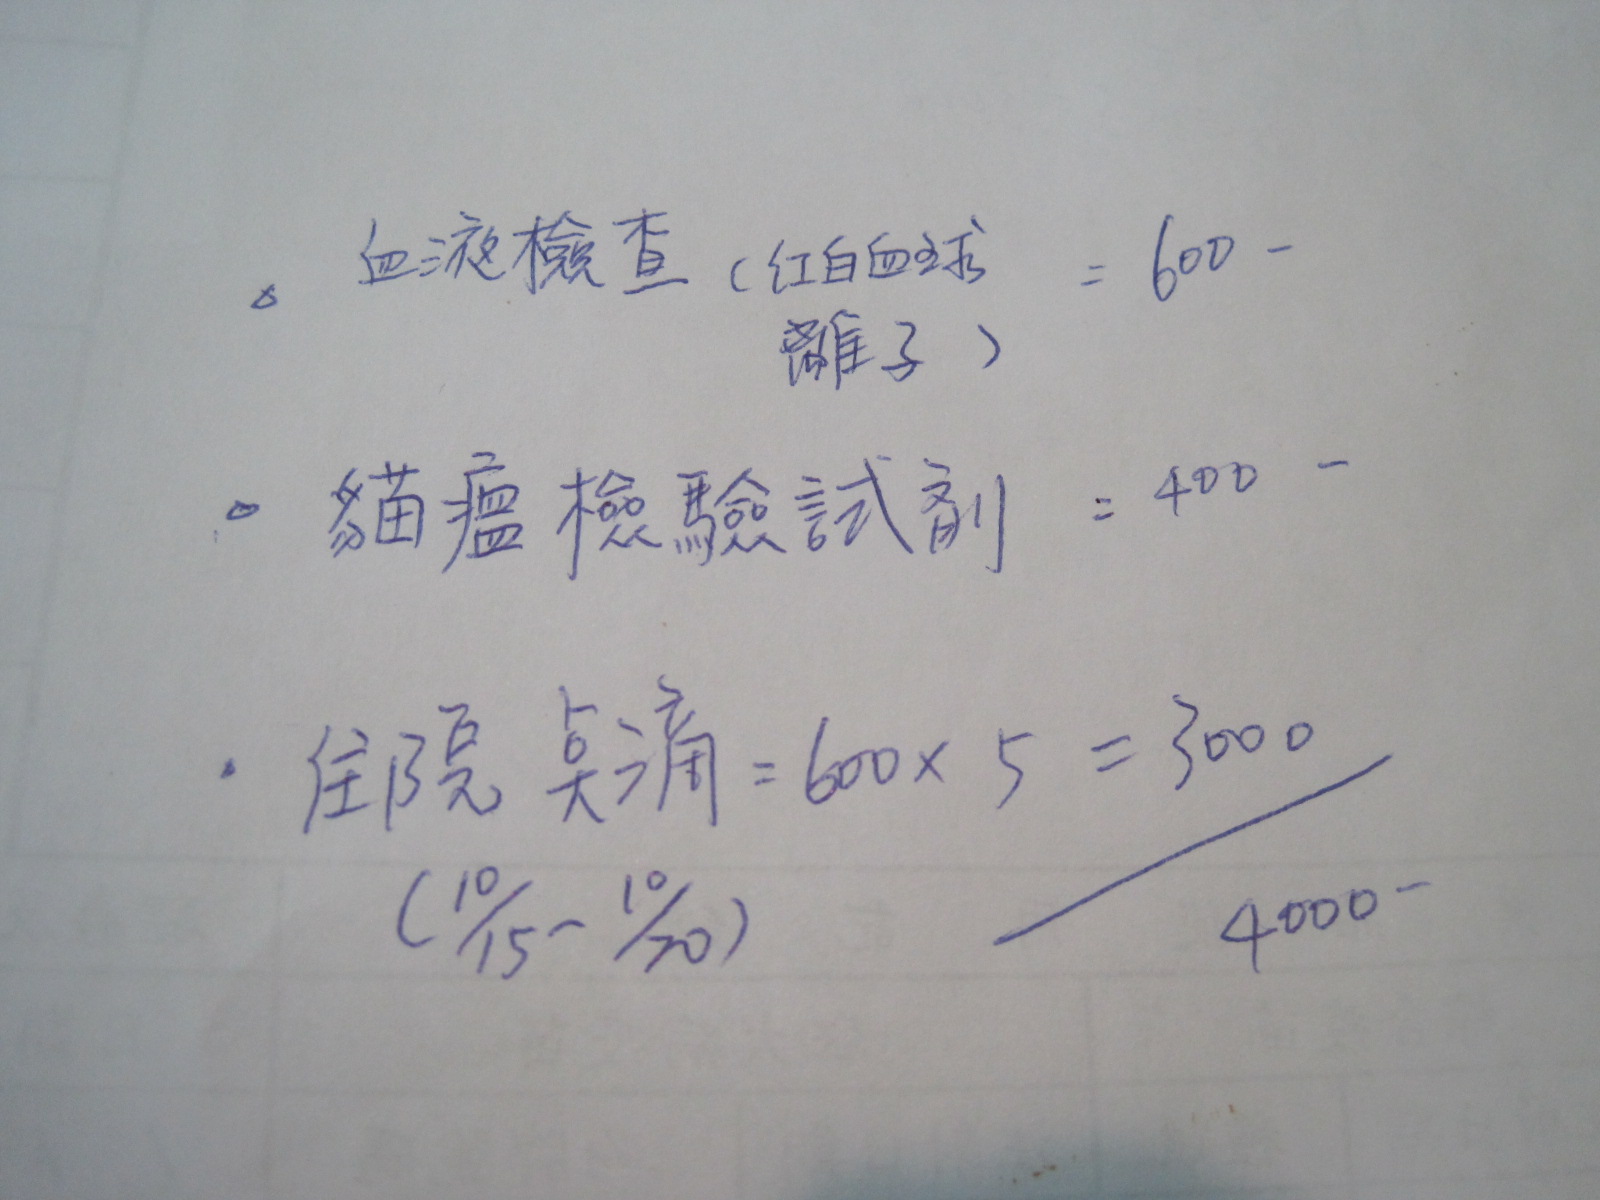 血液檢查(紅白血球 = 600 -
離子)
貓瘟檢驗試劑 = 400 -
住院 点滴 = 600 × 5 = 3000
(10/15 - 10/20)
4000 -